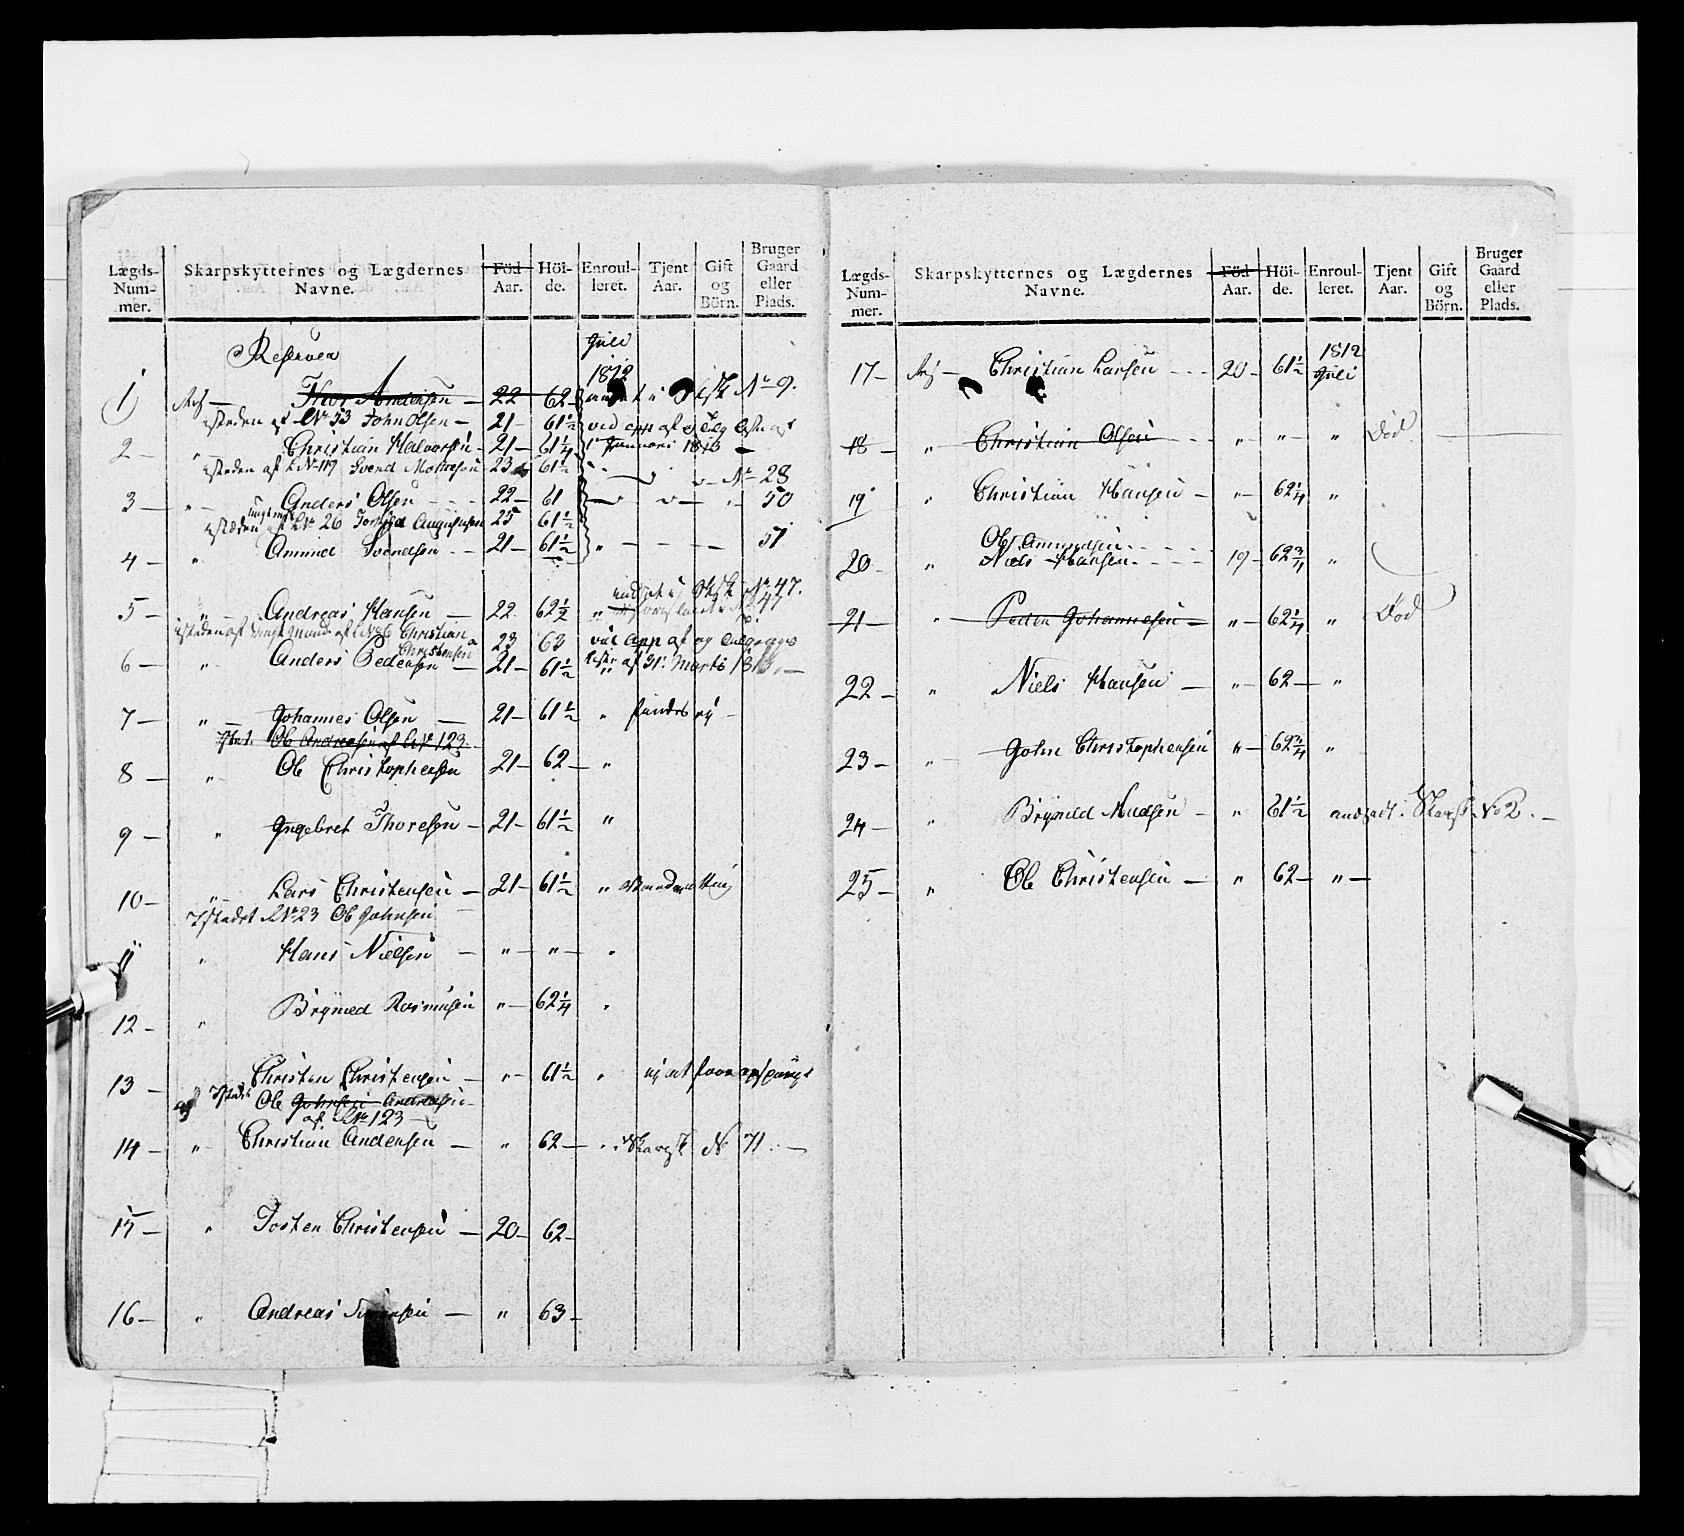 Lægds-Num-mer. Skarpskytternes og Lægdernes Navne. Föd Aar. Höi-de. Enroul-leret. Tjent Aar. Gift og Börn. Bruger Gaard eller Plads.
Reserven Juli 1812
1 Res — Thor Andersen — 22 — 62 No 9.
isteden af LNo 53 John Olsen — 21 — 61½ ved app af
2 — " Christian Halvorsen — 21 — 61¼ 1 Januari 1813 —
isteden af LNo 119 Svend 23 61½ No 28
3 — " — Anders Olsen 22 — 61 50
isteden af LNo 26 25 61½
4 — " Amund Svendsen — 21 — 61½ " — 51
5 — " Andreas Hansen — 22 62½ " No 47.
isteden af af LNo 6 Christian Christensen 23 63 ved app af og
6 — " Anders Pedersen — 21 — 61½ af 31 Marts 1813. —
7 — " — Johannes Olsen — 21 — 61½ " findes ej —
Isted. Ole Andreasen af LNo 123
8 — " Ole Christophersen 21 — 62 — "
9 — " Ingebret Thoresen — 21 — 61½ "
10 — " Lars Christensen — 21 — 61½ "
Istedet LNo 23 Ole Johnsen
11 " Hans Nielsen — " — " — "
12 — " Brynild Rasmusen " — 62¼ "
13 — Christen Christensen — " — 61½ "
af Istedet Ole Johnsen Andreasen
af LNo 123 —
14 — " Christian Andersen — " 62 — " Skarpsk No 71. —
15 — " Tosten Christensen — 20 — 62 —
16 — " Andreas — " 63 —
Lægds-Num-mer. Skarpskytternes og Lægdernes Navne. Föd Aar. Höi-de. Enroul-leret. Tjent Aar. Gift og Börn. Bruger Gaard eller Plads.
17 — Res — Christian Larsen 20 — 61½ 1812 Juli
18 — " Christian Olsen " — " — " Död
19 " Christian Hansen — " — 62¼ "
Ole Amundsen
20 — " Niels Hansen 19 — 62¾ "
21 — " — Peder Johannesen — " — 62¼ " Död
22 — " Niels Hansen — " — 62 — "
23 — " John Christophersen " — 62¾ "
24 — " Brynild Knudsen — " 61½ andsadt i Skarpsk. No 2. —
25 — " Ole Christensen — " 62 — " —